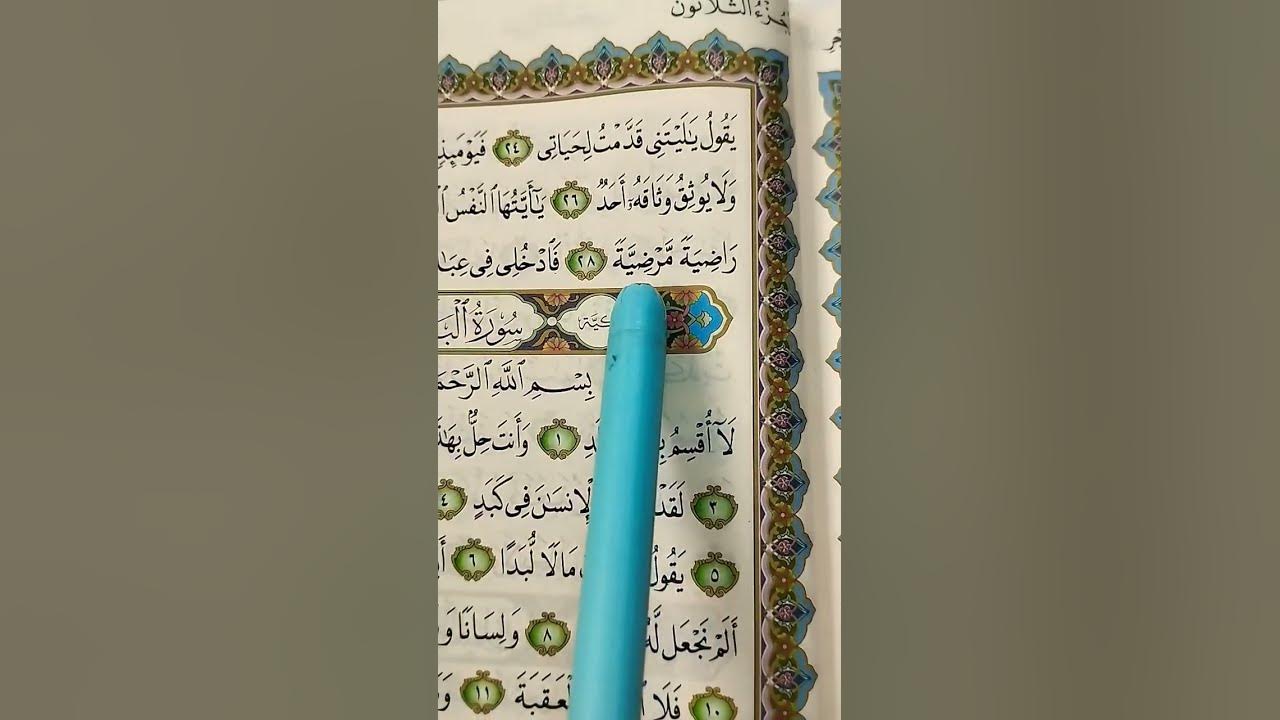 الجزء الثلاثون
يَقُولُ يَـٰلَيْتَنِى قَدَّمْتُ لِحَيَاتِى ٢٤ فَيَوْمَئِذٍ
وَلَا يُوثِقُ وَثَاقَهُۥٓ أَحَدٌ ٢٦ يَـٰٓأَيَّتُهَا ٱلنَّفْسُ
رَاضِيَةً مَّرْضِيَّةً ٢٨ فَٱدْخُلِى فِى
سُورَةُ
بِسْمِ ٱللَّهِ
لَآ أُقْسِمُ ١ وَأَنتَ حِلٌّۢ
٣ ٱلْإِنسَـٰنَ فِى كَبَدٍ ٤
٥ يَقُولُ مَالًا لُّبَدًا ٦
أَلَمْ نَجْعَل ٨ وَلِسَانًا
١٠ فَلَا ٱلْعَقَبَةَ ١١